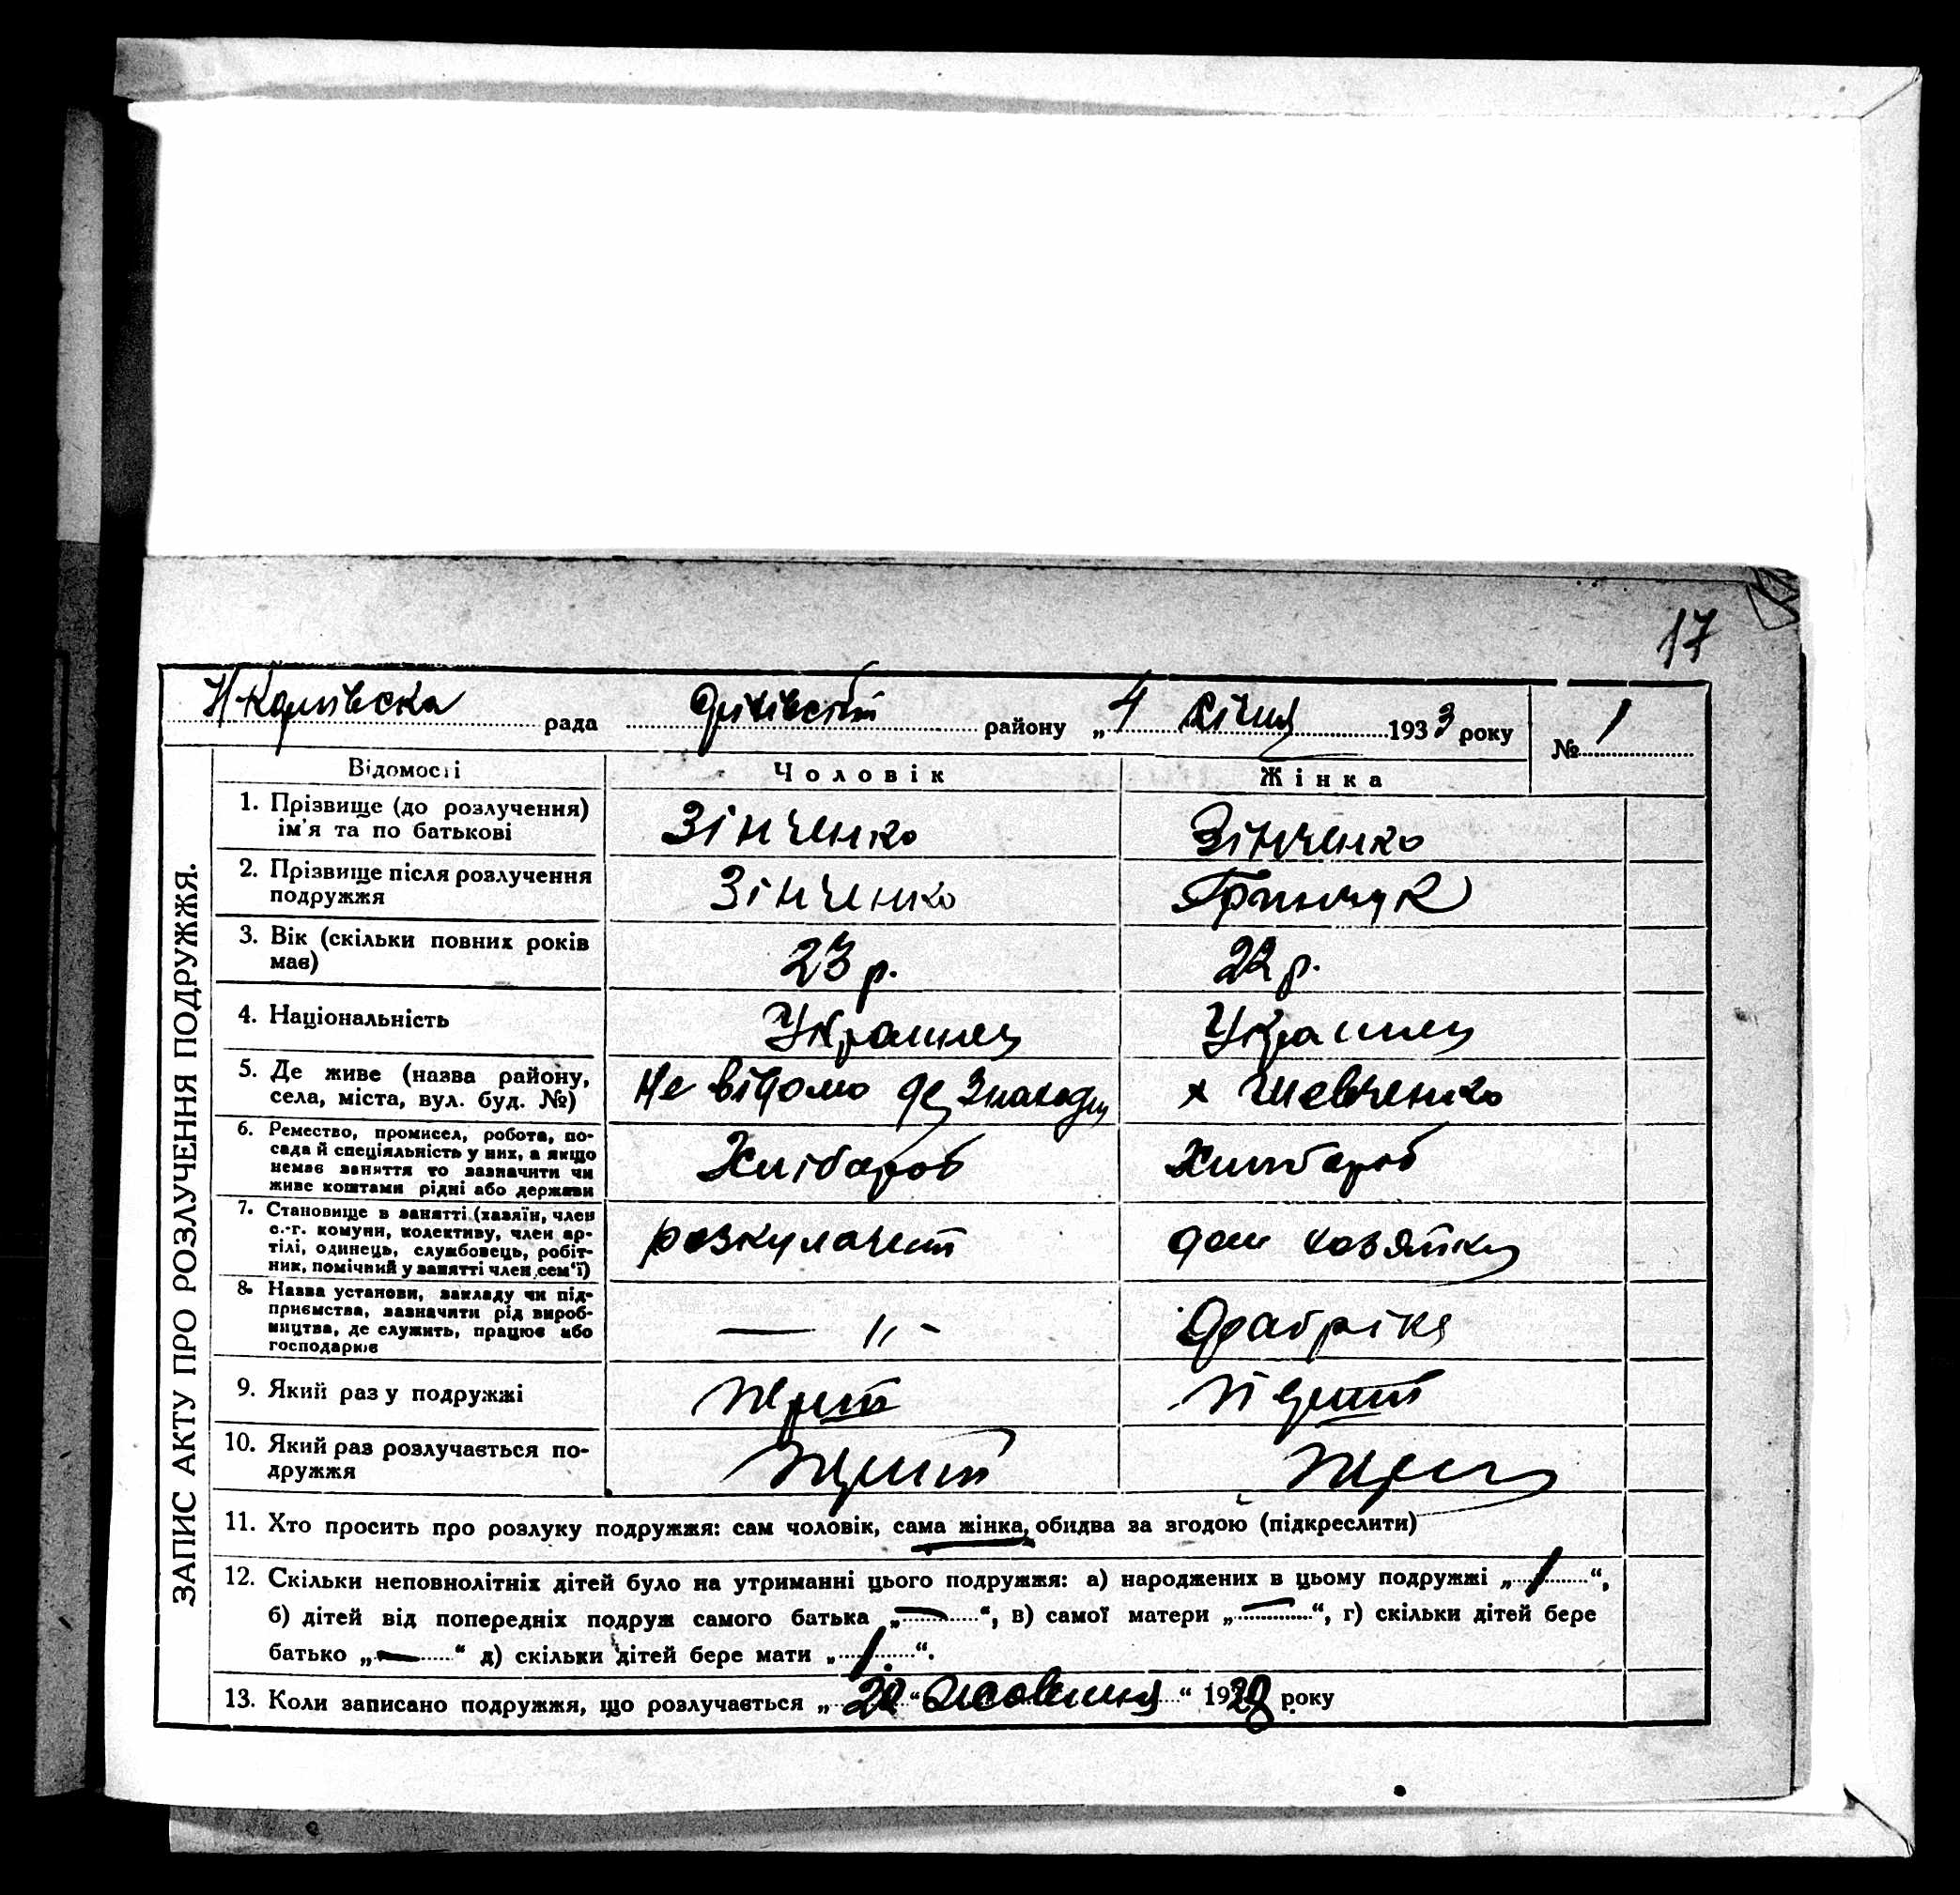 17
Н Карлівска рада район у „4 січня 1933 року № 1
ЗАПИС АКТУ ПРО РОЗЛУЧЕННЯ ПОДРУЖЖЯ.
Відомості Чоловік Жінка
1. Прізвище (до розлучення) Зінченко Зінченко
ім'я та по батькові
2. Прізвище після розлучення Зінченко Гринчук
подружжя
3. Вік (скільки повних років 23 р. 22 р.
має)
4. Національність Украинец Украинец
5. Де живе (назва району, Не відомо де х Шевченко
села, міста, вул. буд. №)
6. Ремество, промисел, робота, по- Хлібороб Хлібороб
сада й спеціяльність у них, а якщо
немає заняття то зазначити чи
живе коштами рідні або держави
7. Становище в занятті (хазяїн, член розкулачений дом хозяйка
с.-г. комуни, колективу, член ар-
тілі, одинець, службовець, робіт-
ник, помічний у занятті член сем'ї)
8. Назва установи, закладу чи під- — „ - Фабріка
приємства, зазначити рід вироб-
ництва, де служить, працює або
господарює
9. Який раз у подружжі
10. Який раз розлучається по-
дружжя
11. Хто просить про розлуку подружжя: сам чоловік, сама жінка, обидва за згодою (підкреслити)
12. Скільки неповнолітніх дітей було на утриманні цього подружжя: а) народжених в цьому подружжі „1“,
б) дітей від попередніх подруж самого батька „—“, в) самої матери „—“, г) скільки дітей бере
батько „—“ д) скільки дітей бере мати „1“.
13. Коли записано подружжя, що розлучається „20“ жовтня“ 1929 року